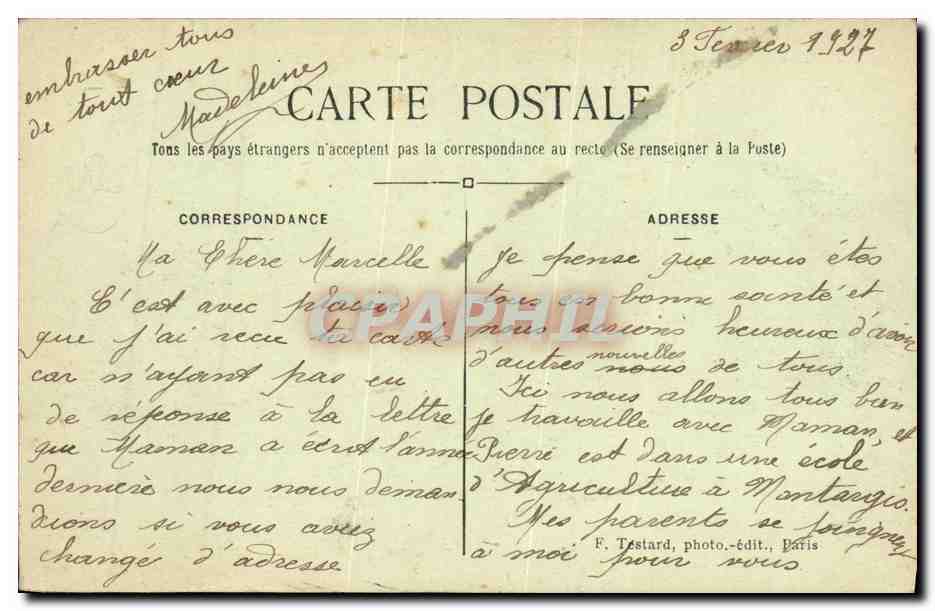 3 Fevrier 1927
CARTE POSTALE
Tous les pays étrangers n'acceptent pas la correspondance au recto (Se renseigner à la Poste)
CORRESPONDANCE
Ma Chère Marcelle
C'est avec plaisir
que j'ai recue ta carte
car n'ayant pas eu
de réponse à la lettre
que Maman a écrit l'année
dernière nous nous deman
dions si vous aviez
changé d'adresse
ADRESSE
Je pense que vous êtes
tous en bonne santé et
nous serions heureux d'avoir
d'autres nous nouvelles de tous
Ici nous allons tous bien
je travaille avec Maman, et
Pierre est dans une école
d'Agriculture à Montargis.
Mes parents se joignent
à moi pour vous
embrasser tous
de tout cœur
Madeleine
F. Testard, photo.-édit., Paris
CPAPHIL